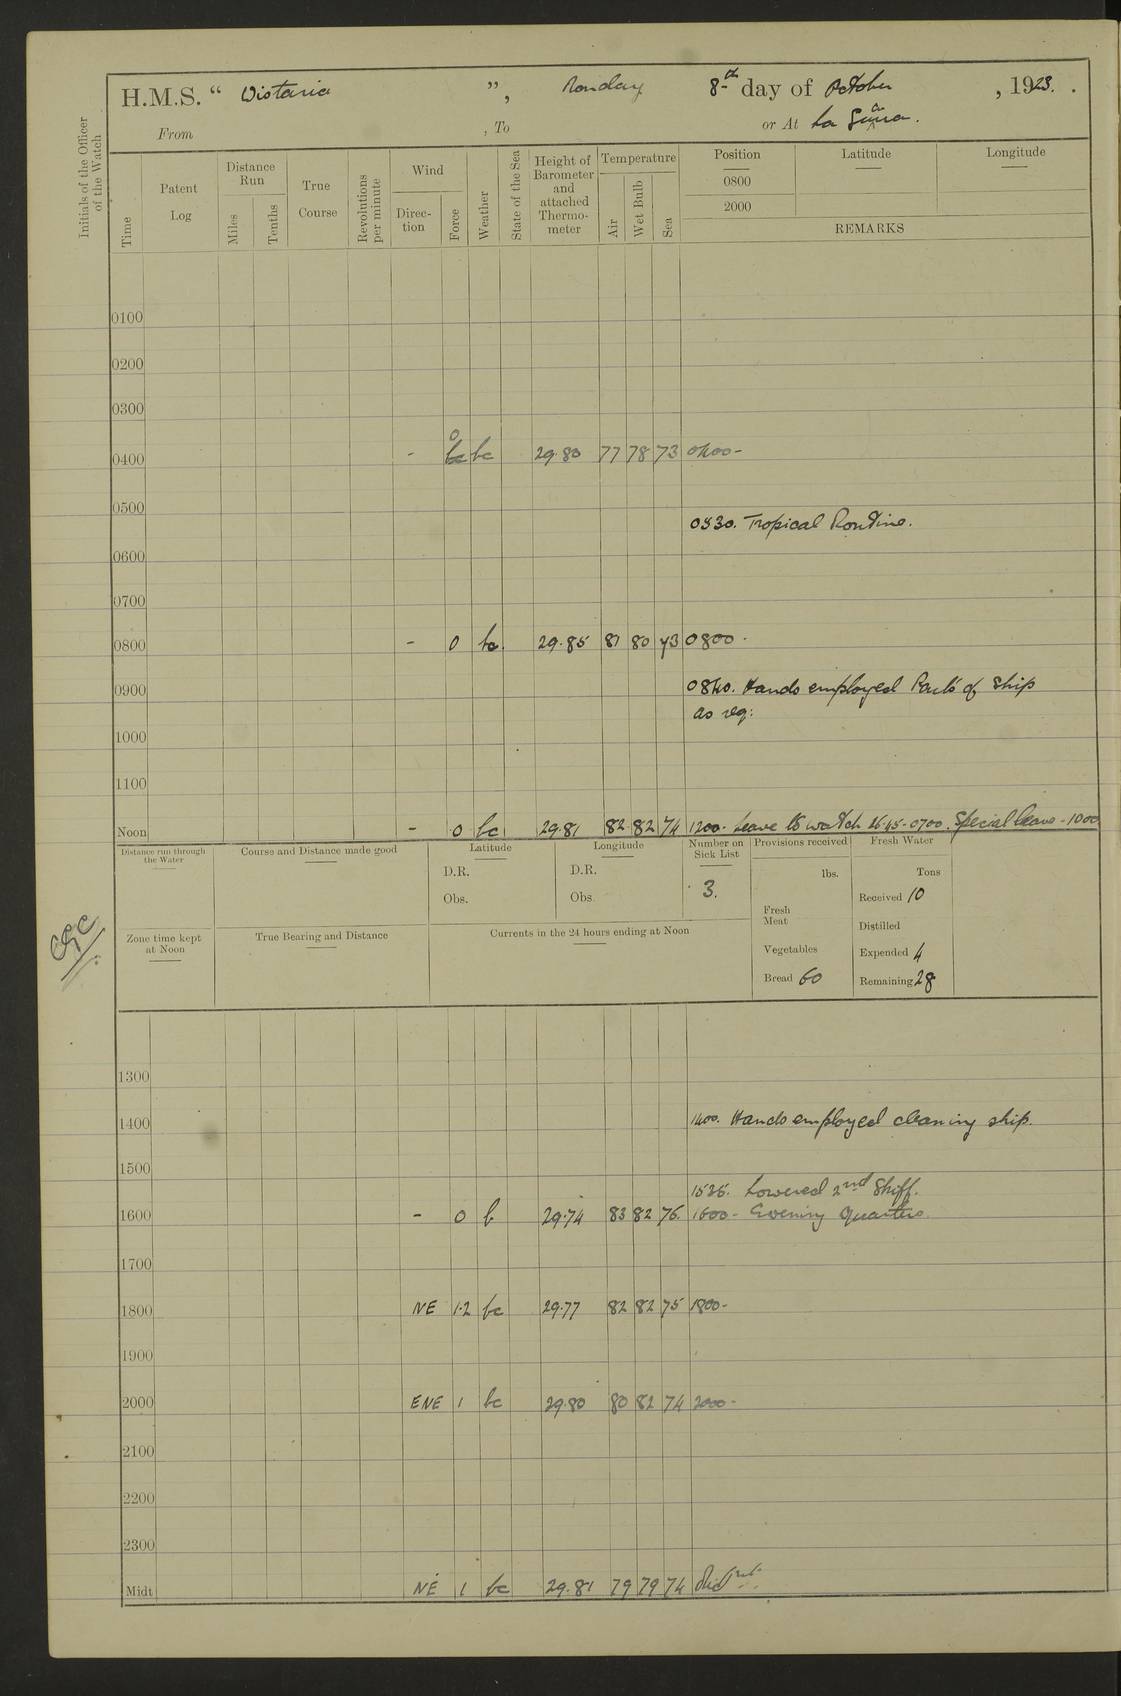 H.M.S. “ Wistaria ”, Monday 8th day of October, 1923.
From , To or At La Guaira.
Initials of the Officer of the Watch
Time Patent Log Distance Run Miles Tenths True Course Revolutions per minute Wind Direction Force Weather State of the Sea Height of Barometer and attached Thermometer Temperature Air Wet Bulb Sea Position Latitude Longitude
0800
2000
REMARKS
0100
0200
0300
0400 - 0 bc bc 29.80 77 78 73 0400 -
0500
0530. Tropical Routine.
0600
0700
0800 - 0 bc. 29.85 81 80 73 0800 -
0900 0840. Hands employed Parts of ship
as req:
1000
1100
Noon - 0 bc 29.81 82 82 74 1200- Leave to watch 1645-0700. Special leave - 1000
Distance run through the Water Course and Distance made good Latitude Longitude Number on Sick List Provisions received Fresh Water
D.R. D.R. lbs. Tons
Obs. Obs. 3. Received 10
Fresh Meat Distilled
Zone time kept at Noon True Bearing and Distance Currents in the 24 hours ending at Noon
Vegetables Expended 4
Bread 60 Remaining 28
1300
1400 1400. Hands employed cleaning ship.
1500
1535. Lowered 2nd Skiff.
1600 - 0 b 29.74 83 82 76. 1600 - Evening Quarters.
1700
1800 NE 1.2 bc 29.77 82 82 75 1800-
1900
2000 ENE 1 bc 29.80 80 82 74 2000 -
2100
2200
2300
Midt NE 1 bc 29.81 79 79 74 Midnt